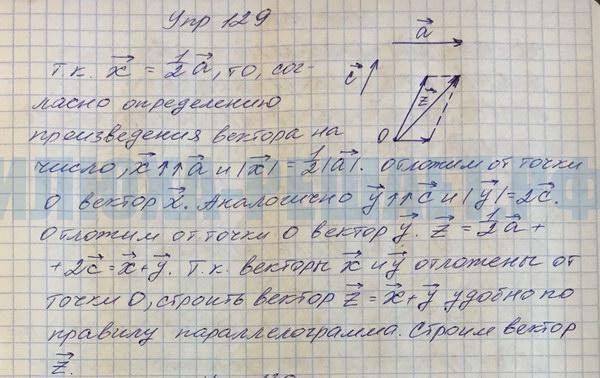 Упр 129
a⃗
т.к. x⃗ = ½a⃗, то, сог-
c⃗
z⃗
ласно определению
произведения вектора на
O
число, x⃗↑↑a⃗ и |x⃗| = ½|a⃗|. Отложим от точки
O вектор x⃗. Аналогично y⃗↑↑c⃗ и |y⃗|=2c⃗.
Отложим от точки O вектор y⃗. z⃗ = ½a⃗ +
+ 2c⃗ = x⃗+y⃗. Т.к. векторы x⃗ и y⃗ отложены от
точки O, строить вектор z⃗ = x⃗+y⃗ удобно по
правилу параллелограмма. Строим вектор
z⃗.